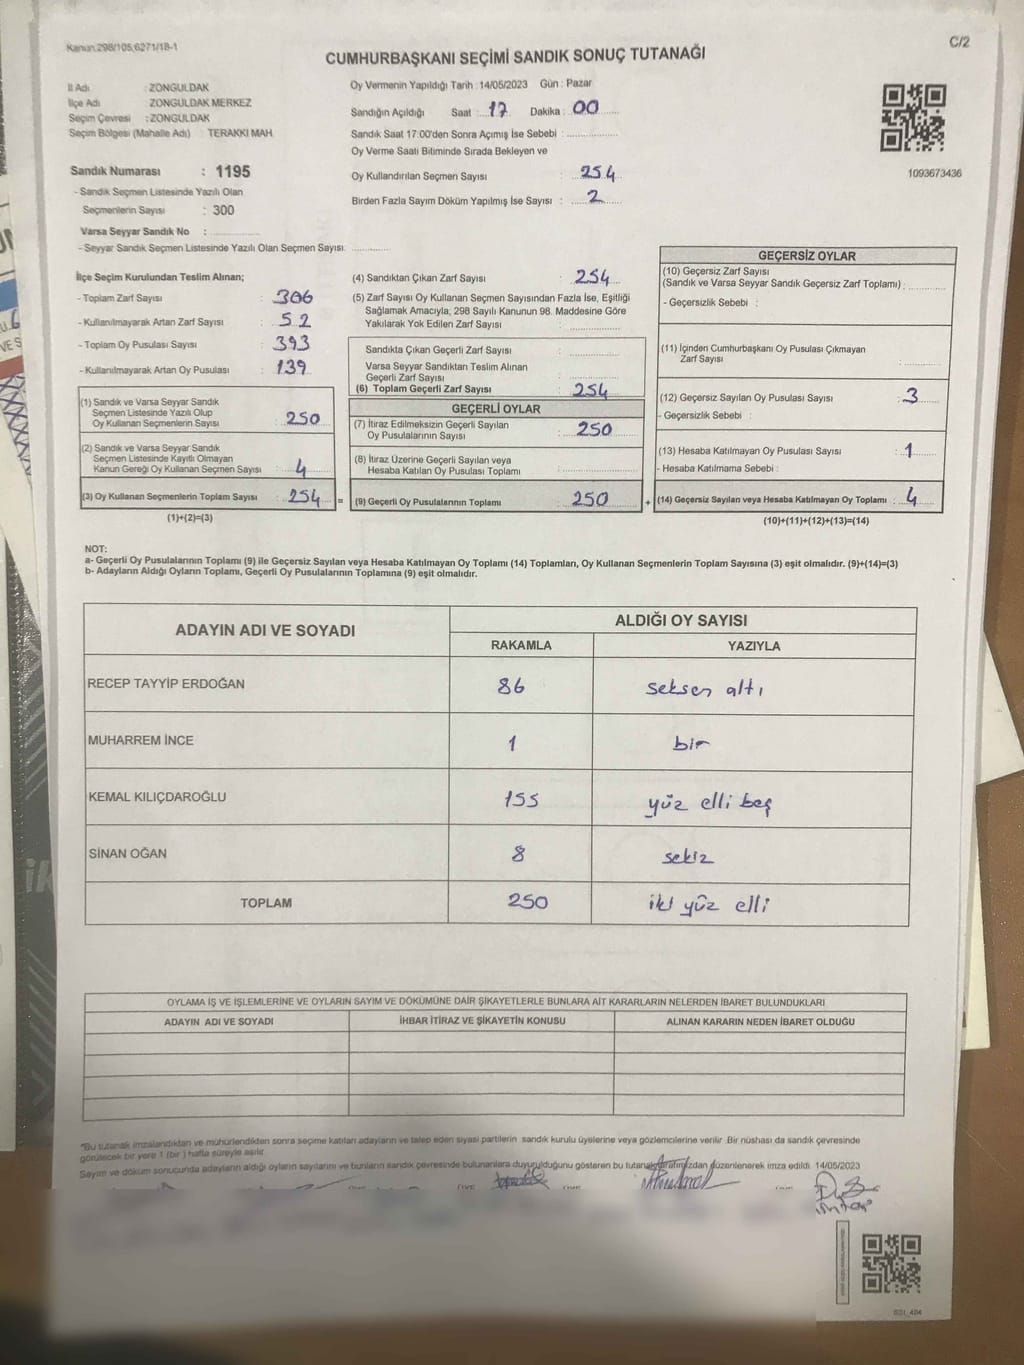 Kanun.298/105,6271/18-1
C/2
CUMHURBAŞKANI SEÇİMİ SANDIK SONUÇ TUTANAĞI
İl Adı : ZONGULDAK
İlçe Adı : ZONGULDAK MERKEZ
Seçim Çevresi : ZONGULDAK
Seçim Bölgesi (Mahalle Adı) : TERAKKİ MAH.
Sandık Numarası : 1195
- Sandık Seçmen Listesinde Yazılı Olan
Seçmenlerin Sayısı : 300
Varsa Seyyar Sandık No :
- Seyyar Sandık Seçmen Listesinde Yazılı Olan Seçmen Sayısı:
Oy Vermenin Yapıldığı Tarih : 14/05/2023 Gün : Pazar
Sandığın Açıldığı Saat : 17 Dakika : 00
Sandık Saat 17:00'den Sonra Açımış İse Sebebi :
Oy Verme Saati Bitiminde Sırada Bekleyen ve
Oy Kullandırılan Seçmen Sayısı : 254
Birden Fazla Sayım Döküm Yapılmış İse Sayısı : 2
1093673436
İlçe Seçim Kurulundan Teslim Alınan;
- Toplam Zarf Sayısı : 306
- Kullanılmayarak Artan Zarf Sayısı : 52
- Toplam Oy Pusulası Sayısı : 393
- Kullanılmayarak Artan Oy Pusulası : 139
(1) Sandık ve Varsa Seyyar Sandık
Seçmen Listesinde Yazılı Olup
Oy Kullanan Seçmenlerin Sayısı : 250
(2) Sandık ve Varsa Seyyar Sandık
Seçmen Listesinde Kayıtlı Olmayan
Kanun Gereği Oy Kullanan Seçmen Sayısı : 4
(3) Oy Kullanan Seçmenlerin Toplam Sayısı : 254 =
(1)+(2)=(3)
(4) Sandıktan Çıkan Zarf Sayısı : 254
(5) Zarf Sayısı Oy Kullanan Seçmen Sayısından Fazla İse, Eşitliği
Sağlamak Amacıyla, 298 Sayılı Kanunun 98. Maddesine Göre
Yakılarak Yok Edilen Zarf Sayısı :
Sandıkta Çıkan Geçerli Zarf Sayısı :
Varsa Seyyar Sandıktan Teslim Alınan
Geçerli Zarf Sayısı :
(6) Toplam Geçerli Zarf Sayısı : 254
GEÇERLİ OYLAR
(7) İtiraz Edilmeksizin Geçerli Sayılan
Oy Pusulalarının Sayısı : 250
(8) İtiraz Üzerine Geçerli Sayılan veya
Hesaba Katılan Oy Pusulası Toplamı :
(9) Geçerli Oy Pusulalarının Toplamı : 250 +
GEÇERSİZ OYLAR
(10) Geçersiz Zarf Sayısı
(Sandık ve Varsa Seyyar Sandık Geçersiz Zarf Toplamı) :
- Geçersizlik Sebebi :
(11) İçinden Cumhurbaşkanı Oy Pusulası Çıkmayan
Zarf Sayısı :
(12) Geçersiz Sayılan Oy Pusulası Sayısı : 3
- Geçersizlik Sebebi :
(13) Hesaba Katılmayan Oy Pusulası Sayısı : 1
- Hesaba Katılmama Sebebi :
(14) Geçersiz Sayılan veya Hesaba Katılmayan Oy Toplamı : 4
(10)+(11)+(12)+(13)=(14)
NOT:
a- Geçerli Oy Pusulalarının Toplamı (9) ile Geçersiz Sayılan veya Hesaba Katılmayan Oy Toplamı (14) Toplamları, Oy Kullanan Seçmenlerin Toplam Sayısına (3) eşit olmalıdır. (9)+(14)=(3)
b- Adayların Aldığı Oyların Toplamı, Geçerli Oy Pusulalarının Toplamına (9) eşit olmalıdır.
ADAYIN ADI VE SOYADI
ALDIĞI OY SAYISI
RAKAMLA YAZIYLA
RECEP TAYYİP ERDOĞAN 86 seksen altı
MUHARREM İNCE 1 bir
KEMAL KILIÇDAROĞLU 155 yüz elli beş
SİNAN OĞAN 8 sekiz
TOPLAM 250 iki yüz elli
OYLAMA İŞ VE İŞLEMLERİNE VE OYLARIN SAYIM VE DÖKÜMÜNE DAİR ŞİKAYETLERLE BUNLARA AİT KARARLARIN NELERDEN İBARET BULUNDUKLARI
ADAYIN ADI VE SOYADI İHBAR İTİRAZ VE ŞİKAYETİN KONUSU ALINAN KARARIN NEDEN İBARET OLDUĞU
*Bu tutanak imzalandıktan ve mühürlendikten sonra seçime katılan adayların ve talep eden siyasi partilerin sandık kurulu üyelerine veya gözlemcilerine verilir. Bir nüshası da sandık çevresinde
görülecek bir yere 1 (bir) hafta süreyle asılır.
Sayım ve döküm sonucunda adayların aldığı oyların sayılarını ve bunların sandık çevresinde bulunanlara duyurulduğunu gösteren bu tutanak tarafımızdan düzenlenerek imza edildi. 14/05/2023